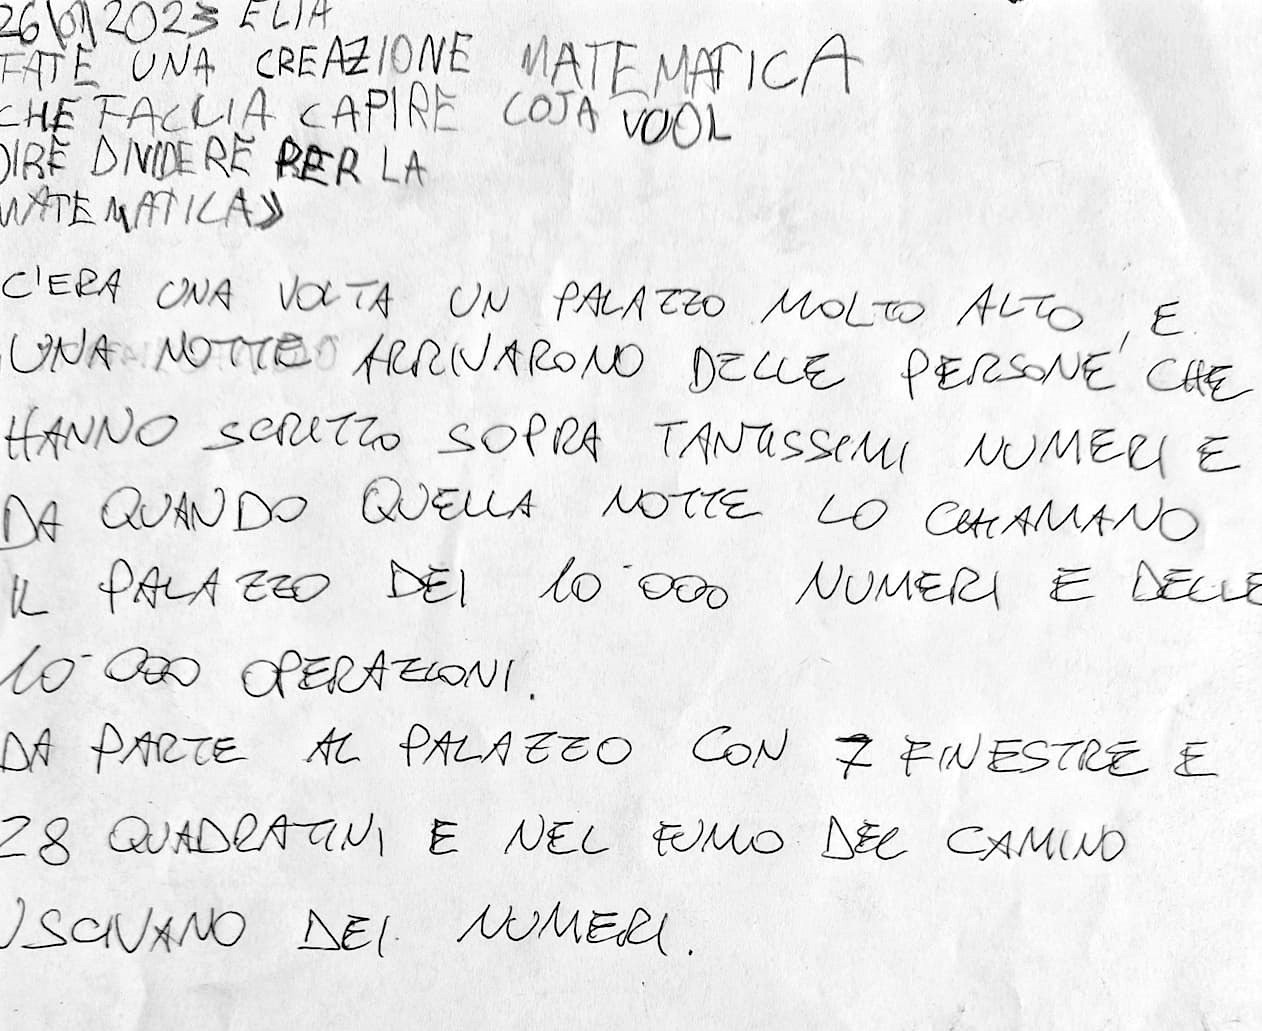 26/01/2023 ELIA
FATE UNA CREAZIONE MATEMATICA
CHE FACCIA CAPIRE COJA VUOL
DIRE DIVIDERE PER LA
MATEMATICA»
C'ERA UNA VOLTA UN PALAZZO MOLTO ALTO, E
UNA NOTTE ARRIVARONO DELLE PERSONE CHE
HANNO SCRITTO SOPRA TANTISSIMI NUMERI E
DA QUANDO QUELLA NOTTE LO CHIAMANO
IL PALAZZO DEI 10'000 NUMERI E DELLE
10'000 OPERAZIONI.
DA PARTE AL PALAZZO CON 7 FINESTRE E
28 QUADRATINI E NEL FUMO DEL CAMINO
USCIVANO DEI NUMERI.